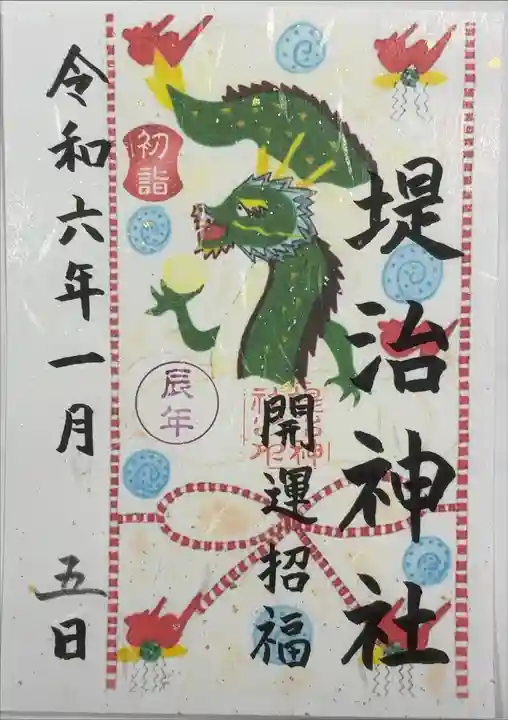 堤治神社
開運招福
初詣
辰年
令和六年一月 五日